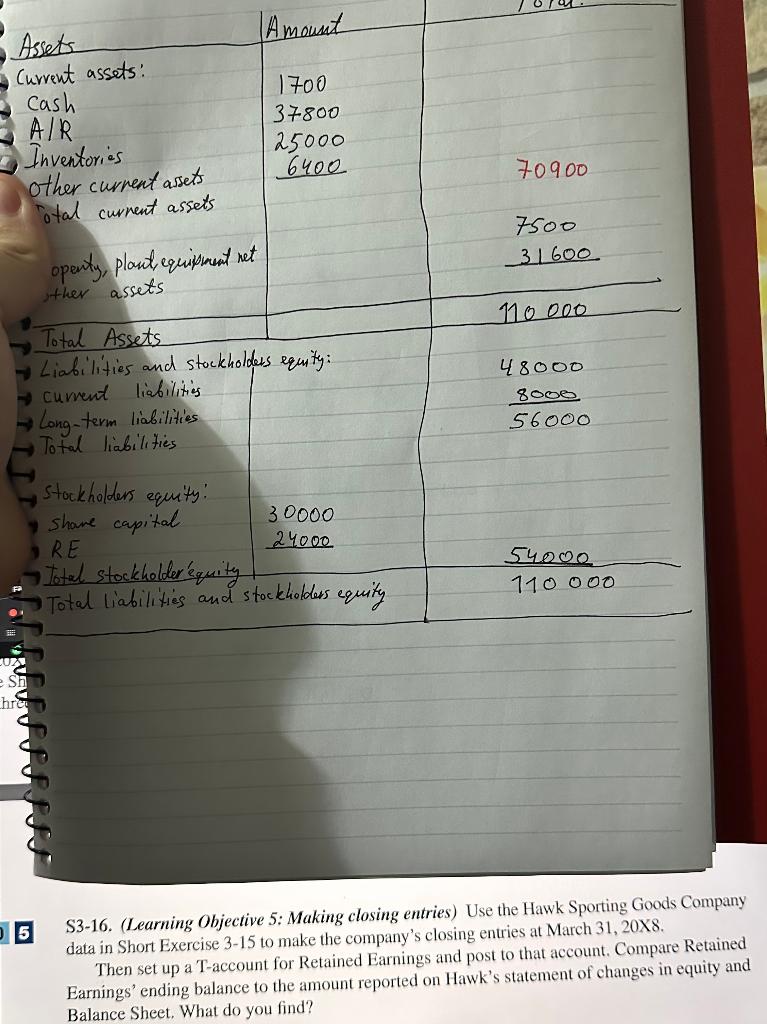 Total.
Assets Amount
Current assets:
Cash 1700
A/R 37800
Inventories 25000
other current assets 6400 70900
total current assets
7500
operty, plant, equipment net 31600
other assets
Total Assets 110 000
Liabilities and stockholders equity:
current liabilities 48000
Long-term liabilities 8000
Total liabilities 56000
Stockholders equity:
Share capital 30000
RE 24000
Total stockholder equity 54000
Total liabilities and stockholders equity 110 000
5
S3-16. (Learning Objective 5: Making closing entries) Use the Hawk Sporting Goods Company
data in Short Exercise 3-15 to make the company's closing entries at March 31, 20X8.
Then set up a T-account for Retained Earnings and post to that account. Compare Retained
Earnings' ending balance to the amount reported on Hawk's statement of changes in equity and
Balance Sheet. What do you find?